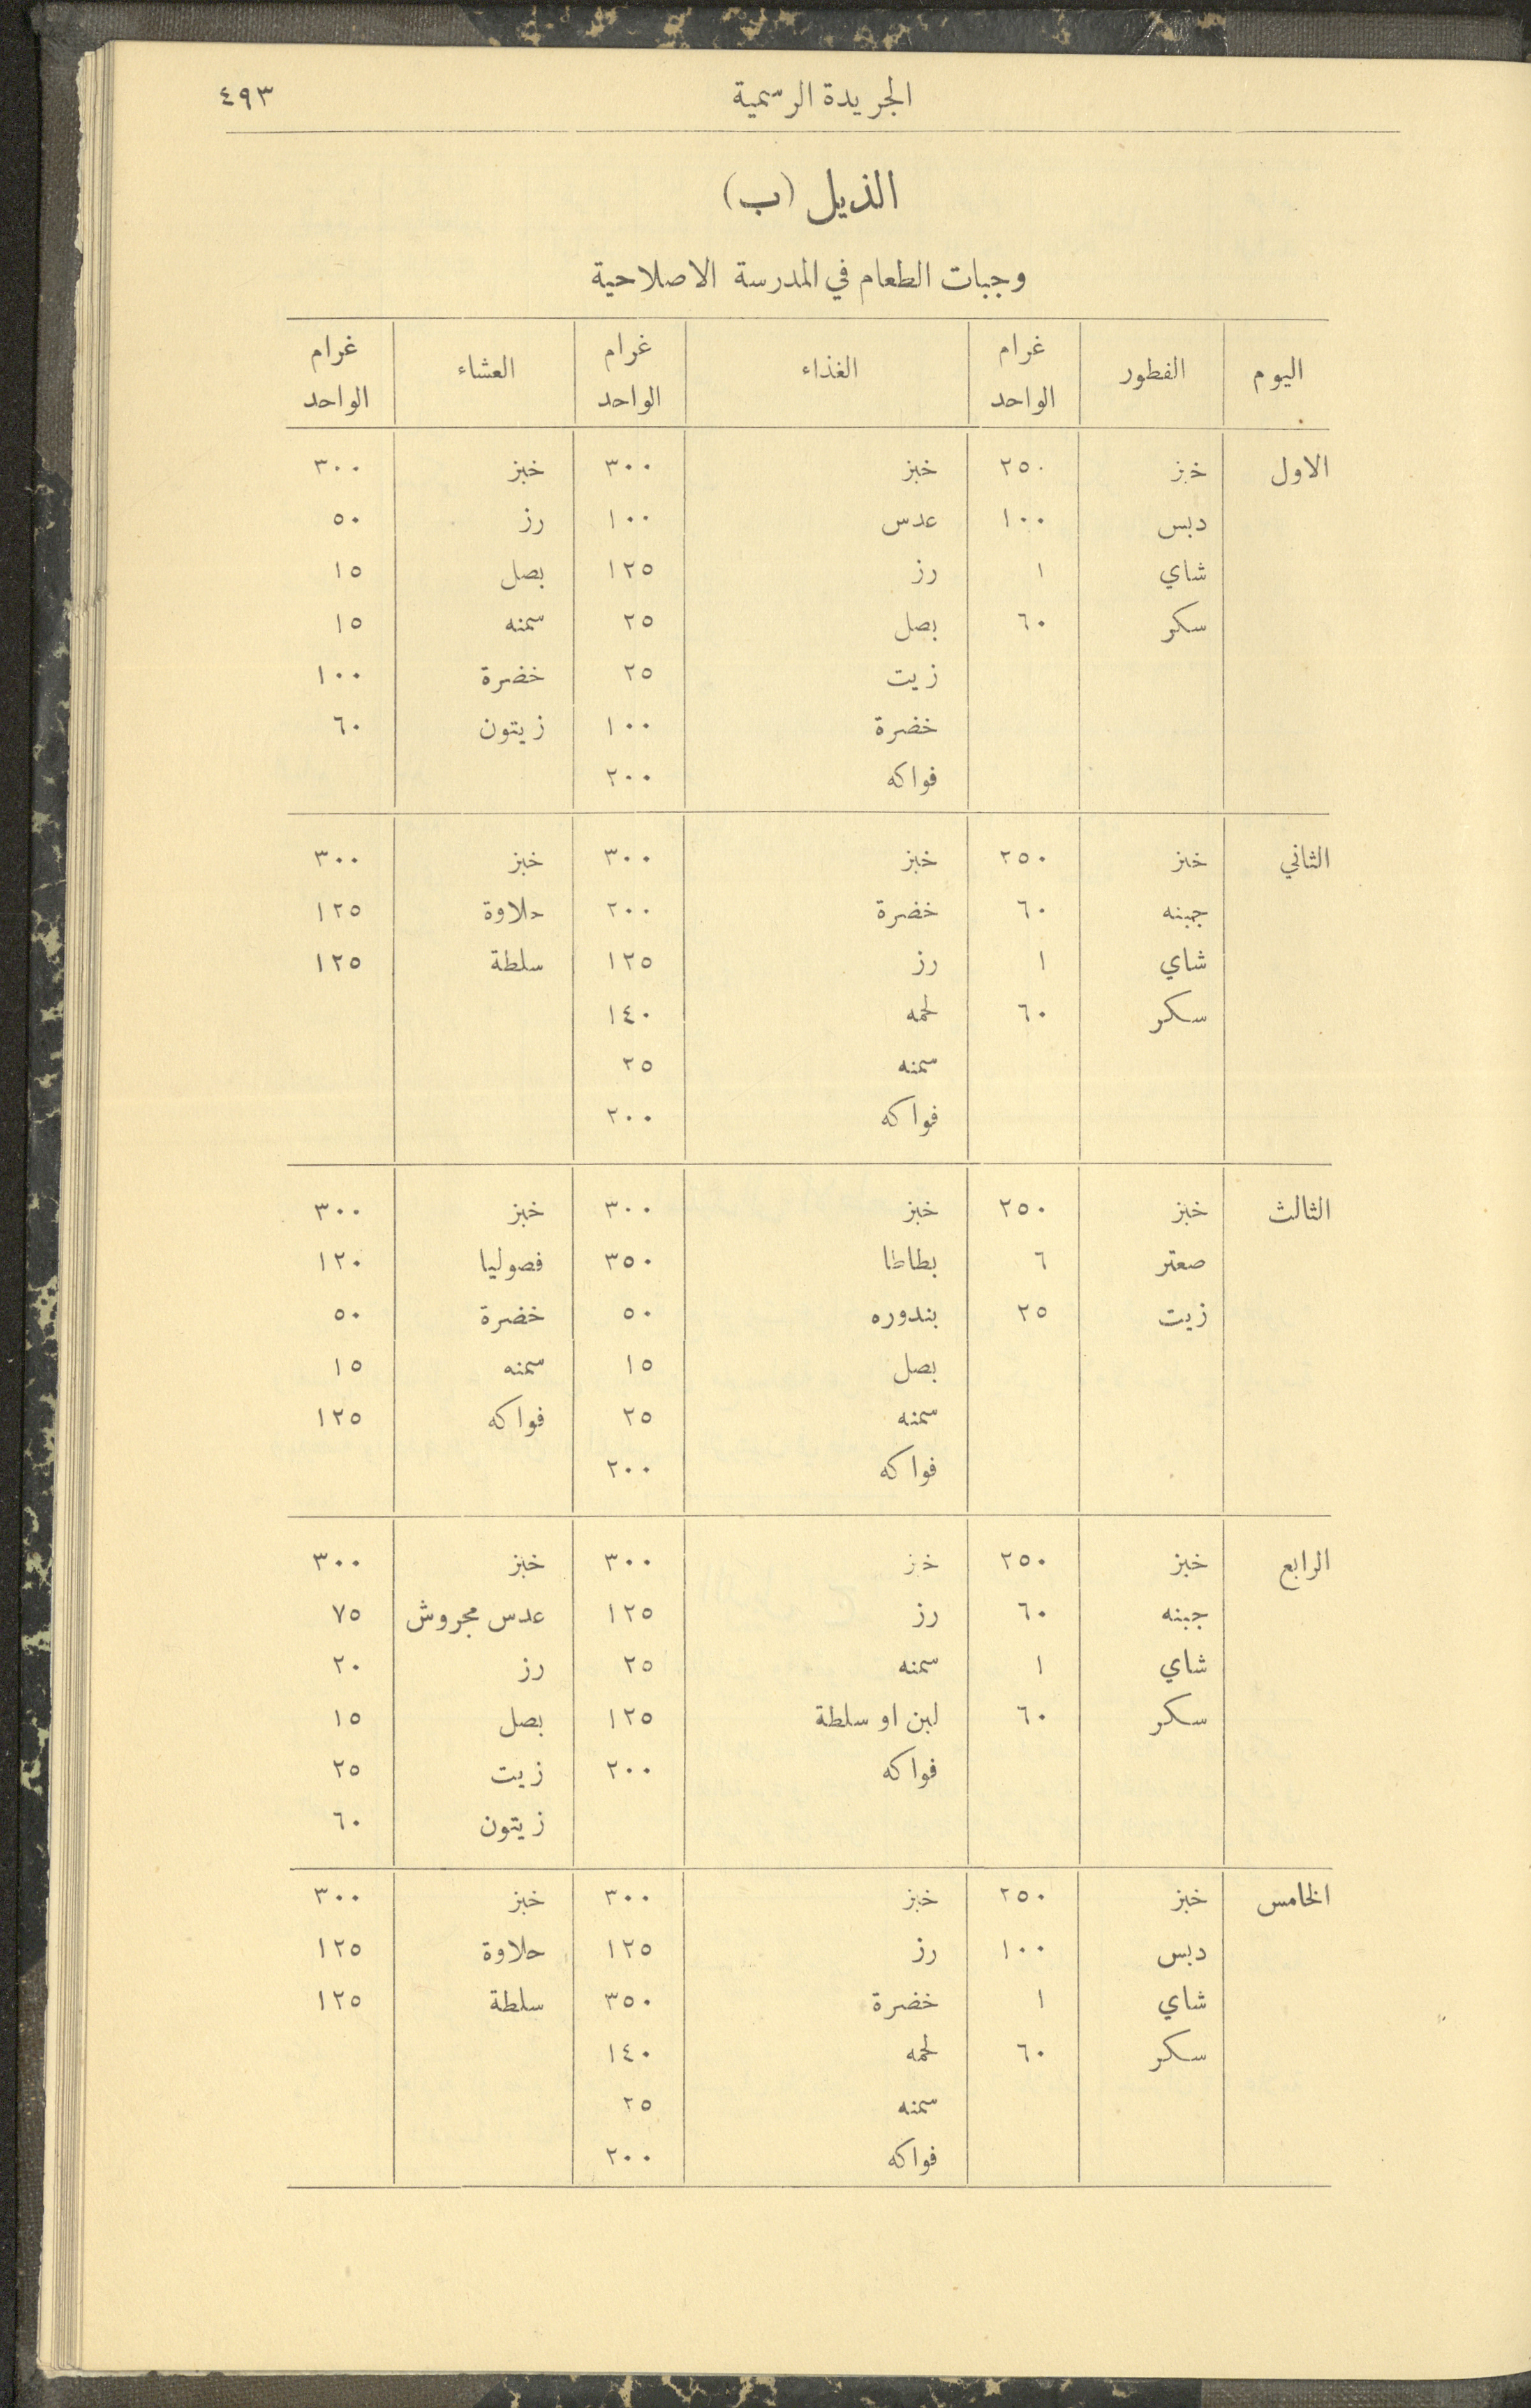 الجريدة الرسمية ٤٩٣
الذيل (ب)
وجبات الطعام في المدرسة الاصلاحية
اليوم الفطور غرام الواحد الغذاء غرام الواحد العشاء غرام الواحد
الاول خبز ٢٥٠ خبز ٣٠٠ خبز ٣٠٠
دبس ١٠٠ عدس ١٠٠ رز ٥٠
شاي ١ رز ١٢٥ بصل ١٥
سكر ٦٠ بصل ٢٥ سمنه ١٥
زيت ٢٥ خضرة ١٠٠
خضرة ١٠٠ زيتون ٦٠
فواكه ٢٠٠
الثاني خبز ٢٥٠ خبز ٣٠٠ خبز ٣٠٠
جبنه ٦٠ خضرة ٢٠٠ حلاوة ١٢٥
شاي ١ رز ١٢٥ سلطة ١٢٥
سكر ٦٠ لحمه ١٤٠
سمنه ٢٥
فواكه ٢٠٠
الثالث خبز ٢٥٠ خبز ٣٠٠ خبز ٣٠٠
صعتر ٦ بطاطا ٣٥٠ فصوليا ١٢٠
زيت ٢٥ بندوره ٥٠ خضرة ٥٠
بصل ١٥ سمنه ١٥
سمنه ٢٥ فواكه ١٢٥
فواكه ٢٠٠
الرابع خبز ٢٥٠ خبز ٣٠٠ خبز ٣٠٠
جبنه ٦٠ رز ١٢٥ عدس مجروش ٧٥
شاي ١ سمنه ٢٥ رز ٢٠
سكر ٦٠ لبن او سلطة ١٢٥ بصل ١٥
فواكه ٢٠٠ زيت ٢٥
زيتون ٦٠
الخامس خبز ٢٥٠ خبز ٣٠٠ خبز ٣٠٠
دبس ١٠٠ رز ١٢٥ حلاوة ١٢٥
شاي ١ خضرة ٣٥٠ سلطة ١٢٥
سكر ٦٠ لحمه ١٤٠
سمنه ٢٥
فواكه ٢٠٠